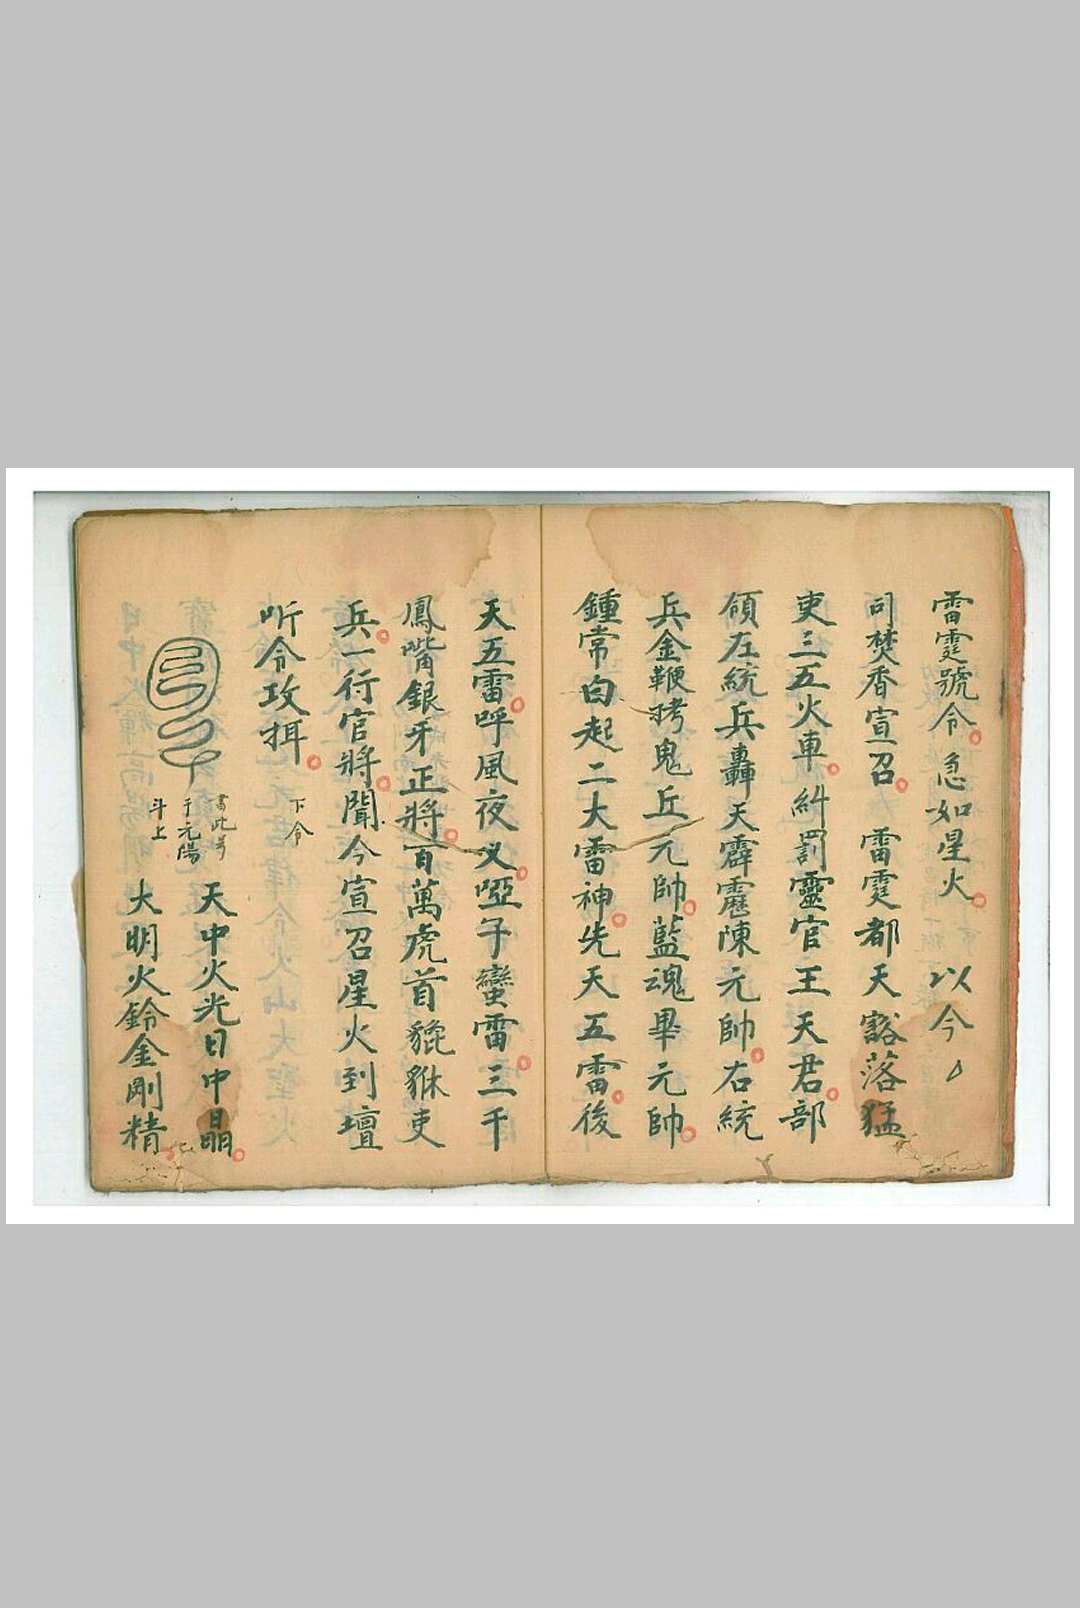 雷霆號令急如星火以今
司焚香宣召雷霆都天豁落猛
吏三五火車糾罰靈官王天君部
領左統兵轟天霹靂陳元帥右統
兵金鞭拷鬼丘元帥藍魂畢元帥
鍾常白起二大雷神先天五雷後
天五雷呼風夜义啞子蠻雷三千
鳳嘴銀牙正將百萬虎首貔貅吏
兵一行官將聞今宣召星火到壇
听令攻揖下令
書此号
于元陽
斗上
天中火光日中晶
大明火鈴金剛精